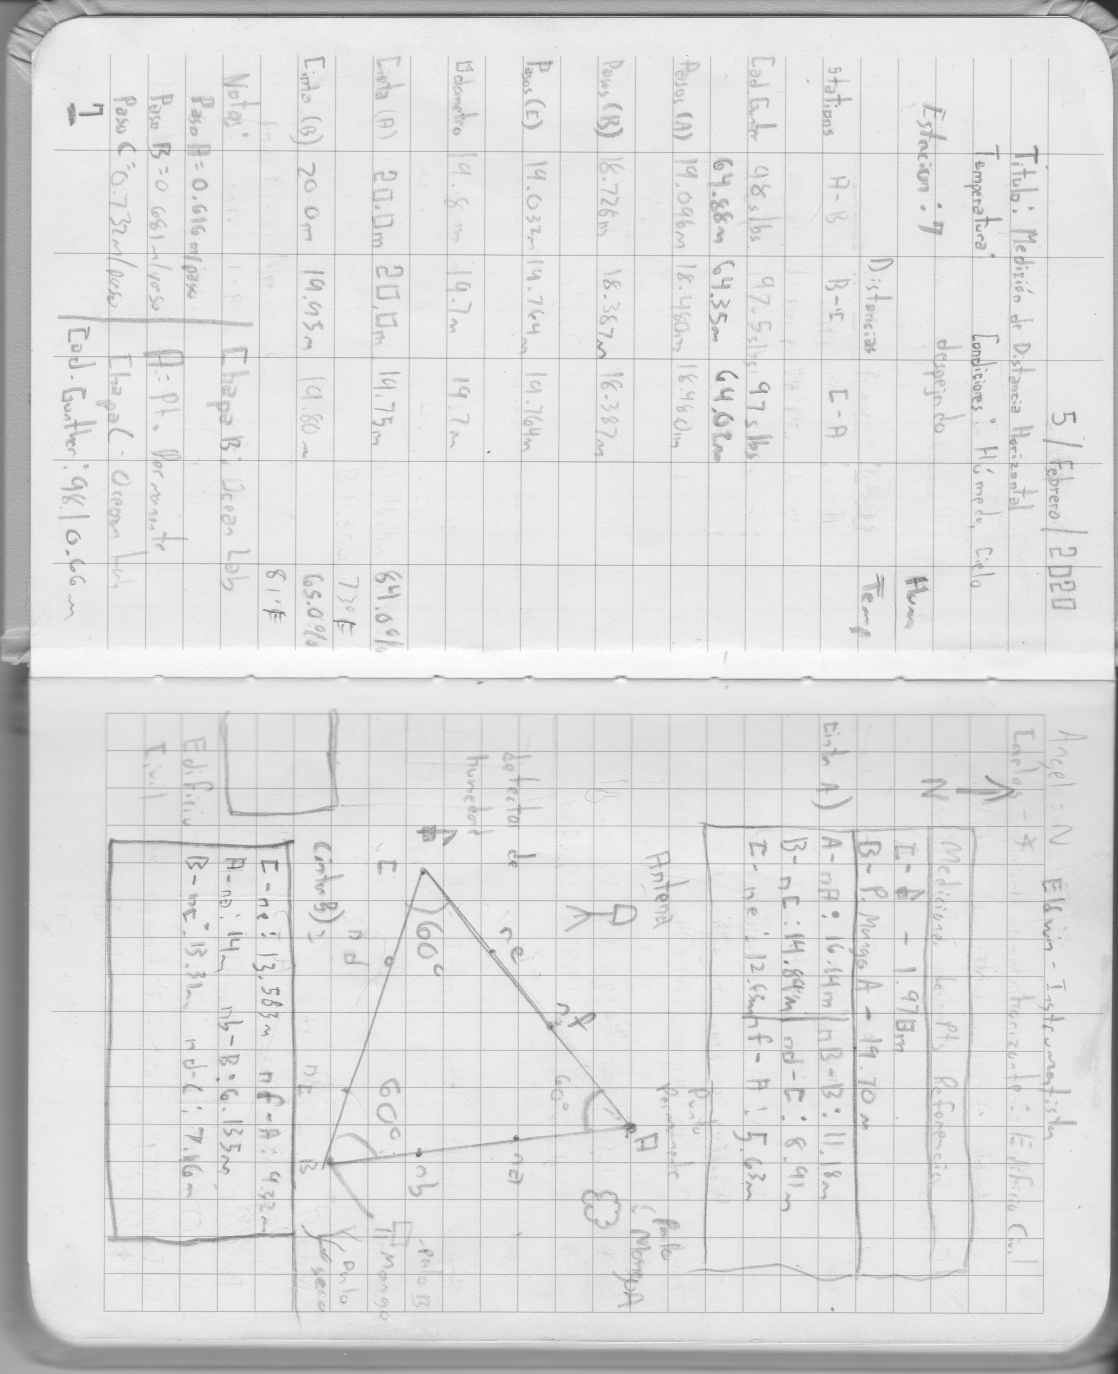 5/Febrero/2020
Título: Medición de Distancia Horizontal
Temperatura: Condiciones: Húmedo, Cielo
despejado
Estacion: 7
Hum
Temp
Distancias
Stations A-B B-C C-A
Cad Gunter 98 slbs 97.5 slbs 97 slbs
64.68m 64.35m 64.02m
Pasos (A) 19.096m 18.480m 18.480m
Pasos (B) 18.726m 18.387m 18.387m
Pasos (C) 19.032m 19.764m 19.764m
Odometro 19.8m 19.7m 19.7m
Cinta (A) 20.0m 20.0m 19.75m 84.0%
73°F
Cinta (B) 20.0m 19.95m 19.80m 65.0%
81°F
Notas:
Paso A = 0.616m/paso
Paso B = 0.681m/paso
Paso C = 0.732m/paso
Chapa B: Ocean Lab
A = Pt. Permanente
Chapa C - Ocean Lab
Cad. Gunther: 98 | 0.66m
7
Angel = N Edwin - Instrumentista
Carlos - * horizonte: Edificio Civil
N
Mediciones de Pts Referencia
C- - 1.970m
B- P. Mango A - 19.70m
Cinta A)
A-na: 16.14m nB-B: 11.18m
B-nc: 14.84m nd-C: 8.91m
C-ne: 12.63m nf-A: 5.63m
Antena
Punto
Permanente
Palo
Mango A
detector de
humedad
A
60°
ne
nf
na
C
60°
nd
60°
nb
nc
B
Palo B
Mango
Palo
seco
Cinta B):
C-ne: 13.583m nf-A: 4.32m
A-na: 14m nb-B: 6.135m
B-nc: 13.31m nd-C: 7.16m
Edificio
Civil